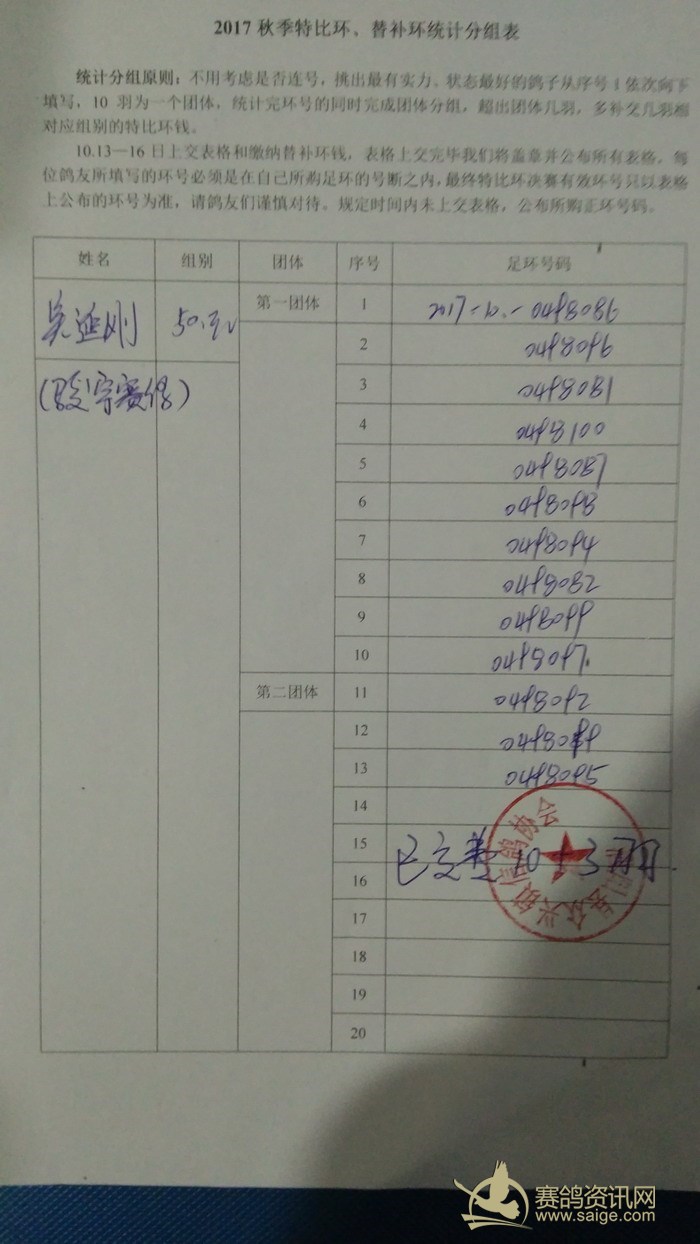 2017 秋季特比环、替补环统计分组表
统计分组原则：不用考虑是否连号，挑出最有实力、状态最好的鸽子从序号 1 依次向下
填写，10 羽为一个团体，统计完环号的同时完成团体分组，超出团体几羽，多补交几羽相
对应组别的特比环钱。
10.13—16 日上交表格和缴纳替补环钱，表格上交完毕我们将盖章并公布所有表格，每
位鸽友所填写的环号必须是在自己所购足环的号断之内，最终特比环决赛有效环号只以表格
上公布的环号为准，请鸽友们谨慎对待。规定时间内未上交表格，公布所购正环号码。
姓名 组别 团体 序号 足环号码
吴延刚 50.元 第一团体 1 2017-10.-0498086
2 0498096
3 0498081
4 0498100
5 0498087
6 0498098
7 0498094
8 0498082
9 0498099
10 0498097.
第二团体 11 0498092
12
13 0498095
14
15
16
17
18
19
20
已交 10+3羽
信鸽协会
赛鸽资讯网
www.saige.com